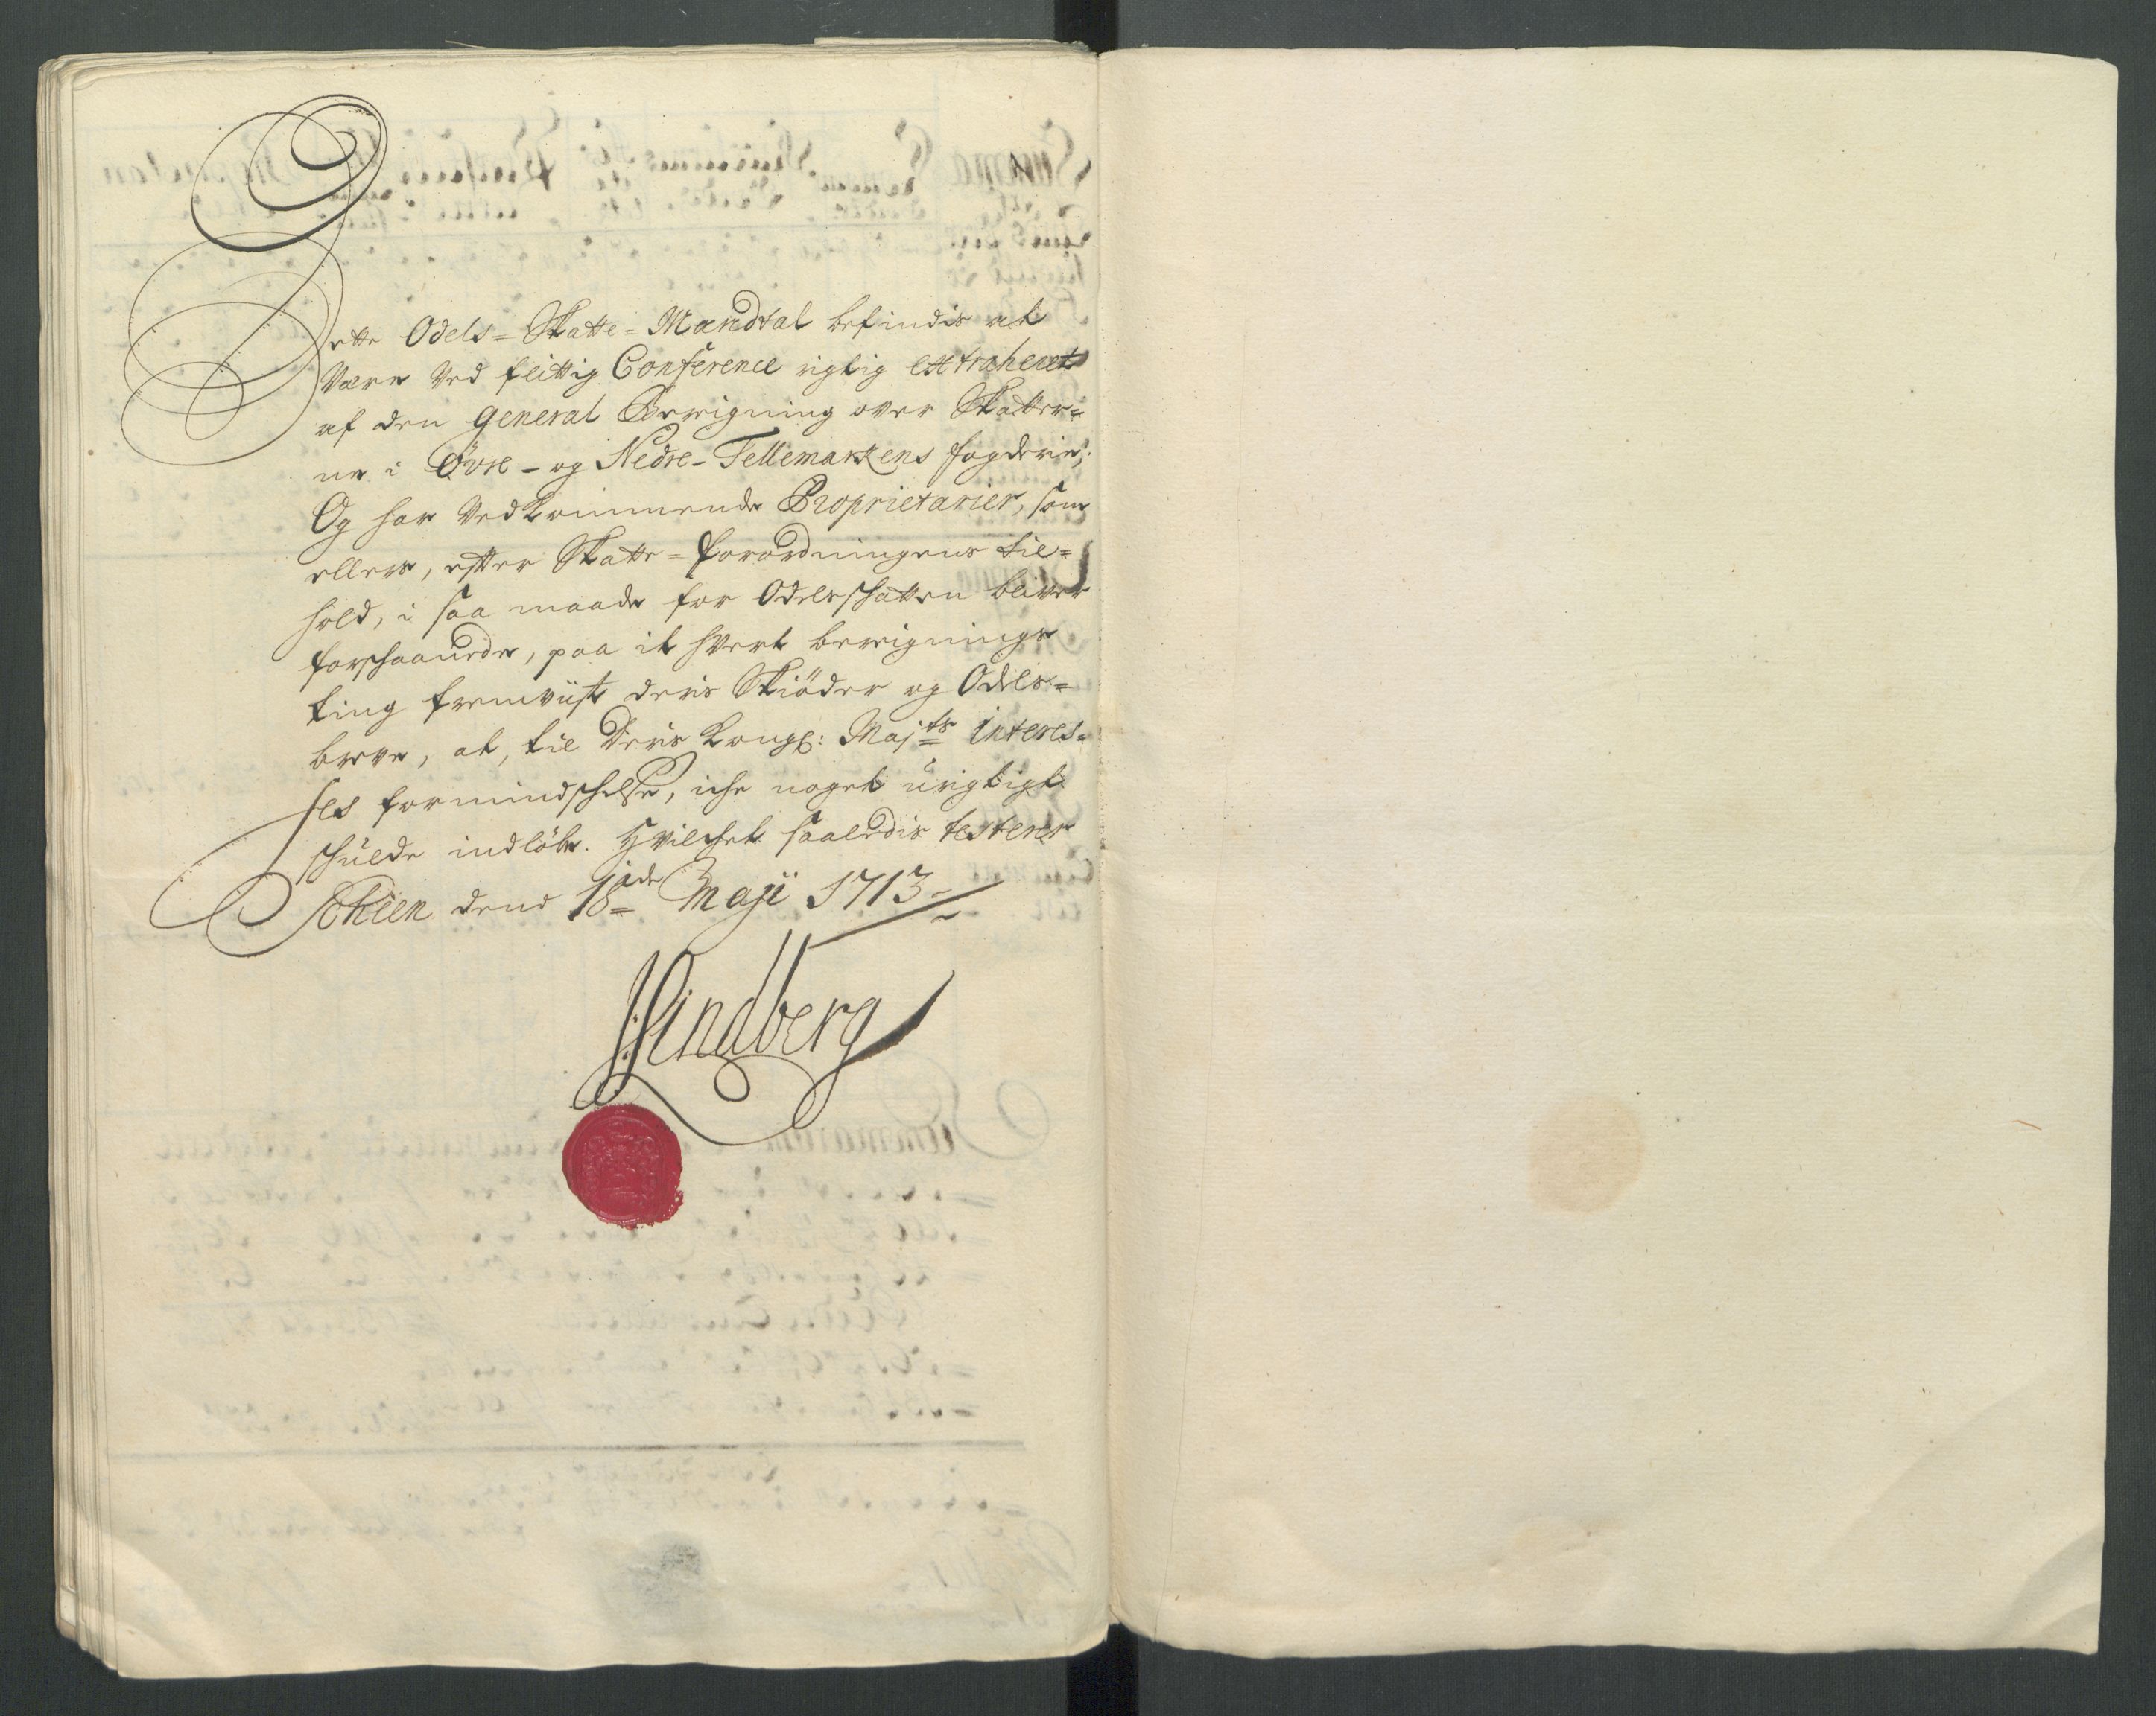 Dette Odels-Skatte-Mandtal befindis at
være ved flittig Conference rigtig extraheret
af den General Berigning over Skatter=
ne i Øvre- og Nedre-Tellemarkens fogderie;
Og har vedkommende Proprietarier, som
ellers, efter Skatte-forordningens til=
hold, i saa maade for Odelsskatten bliver
forschaanede, paa it hvert berignings
ting fremviist deris Skiöder og Odels=
breve, at, til Deris Kongl: Majts Interes=
ses formindschelse, iche noget urigtigt
schulde indlöbe. Hvilchet saaledis testerer
Schien dend 18de Maji 1713
Lindberg